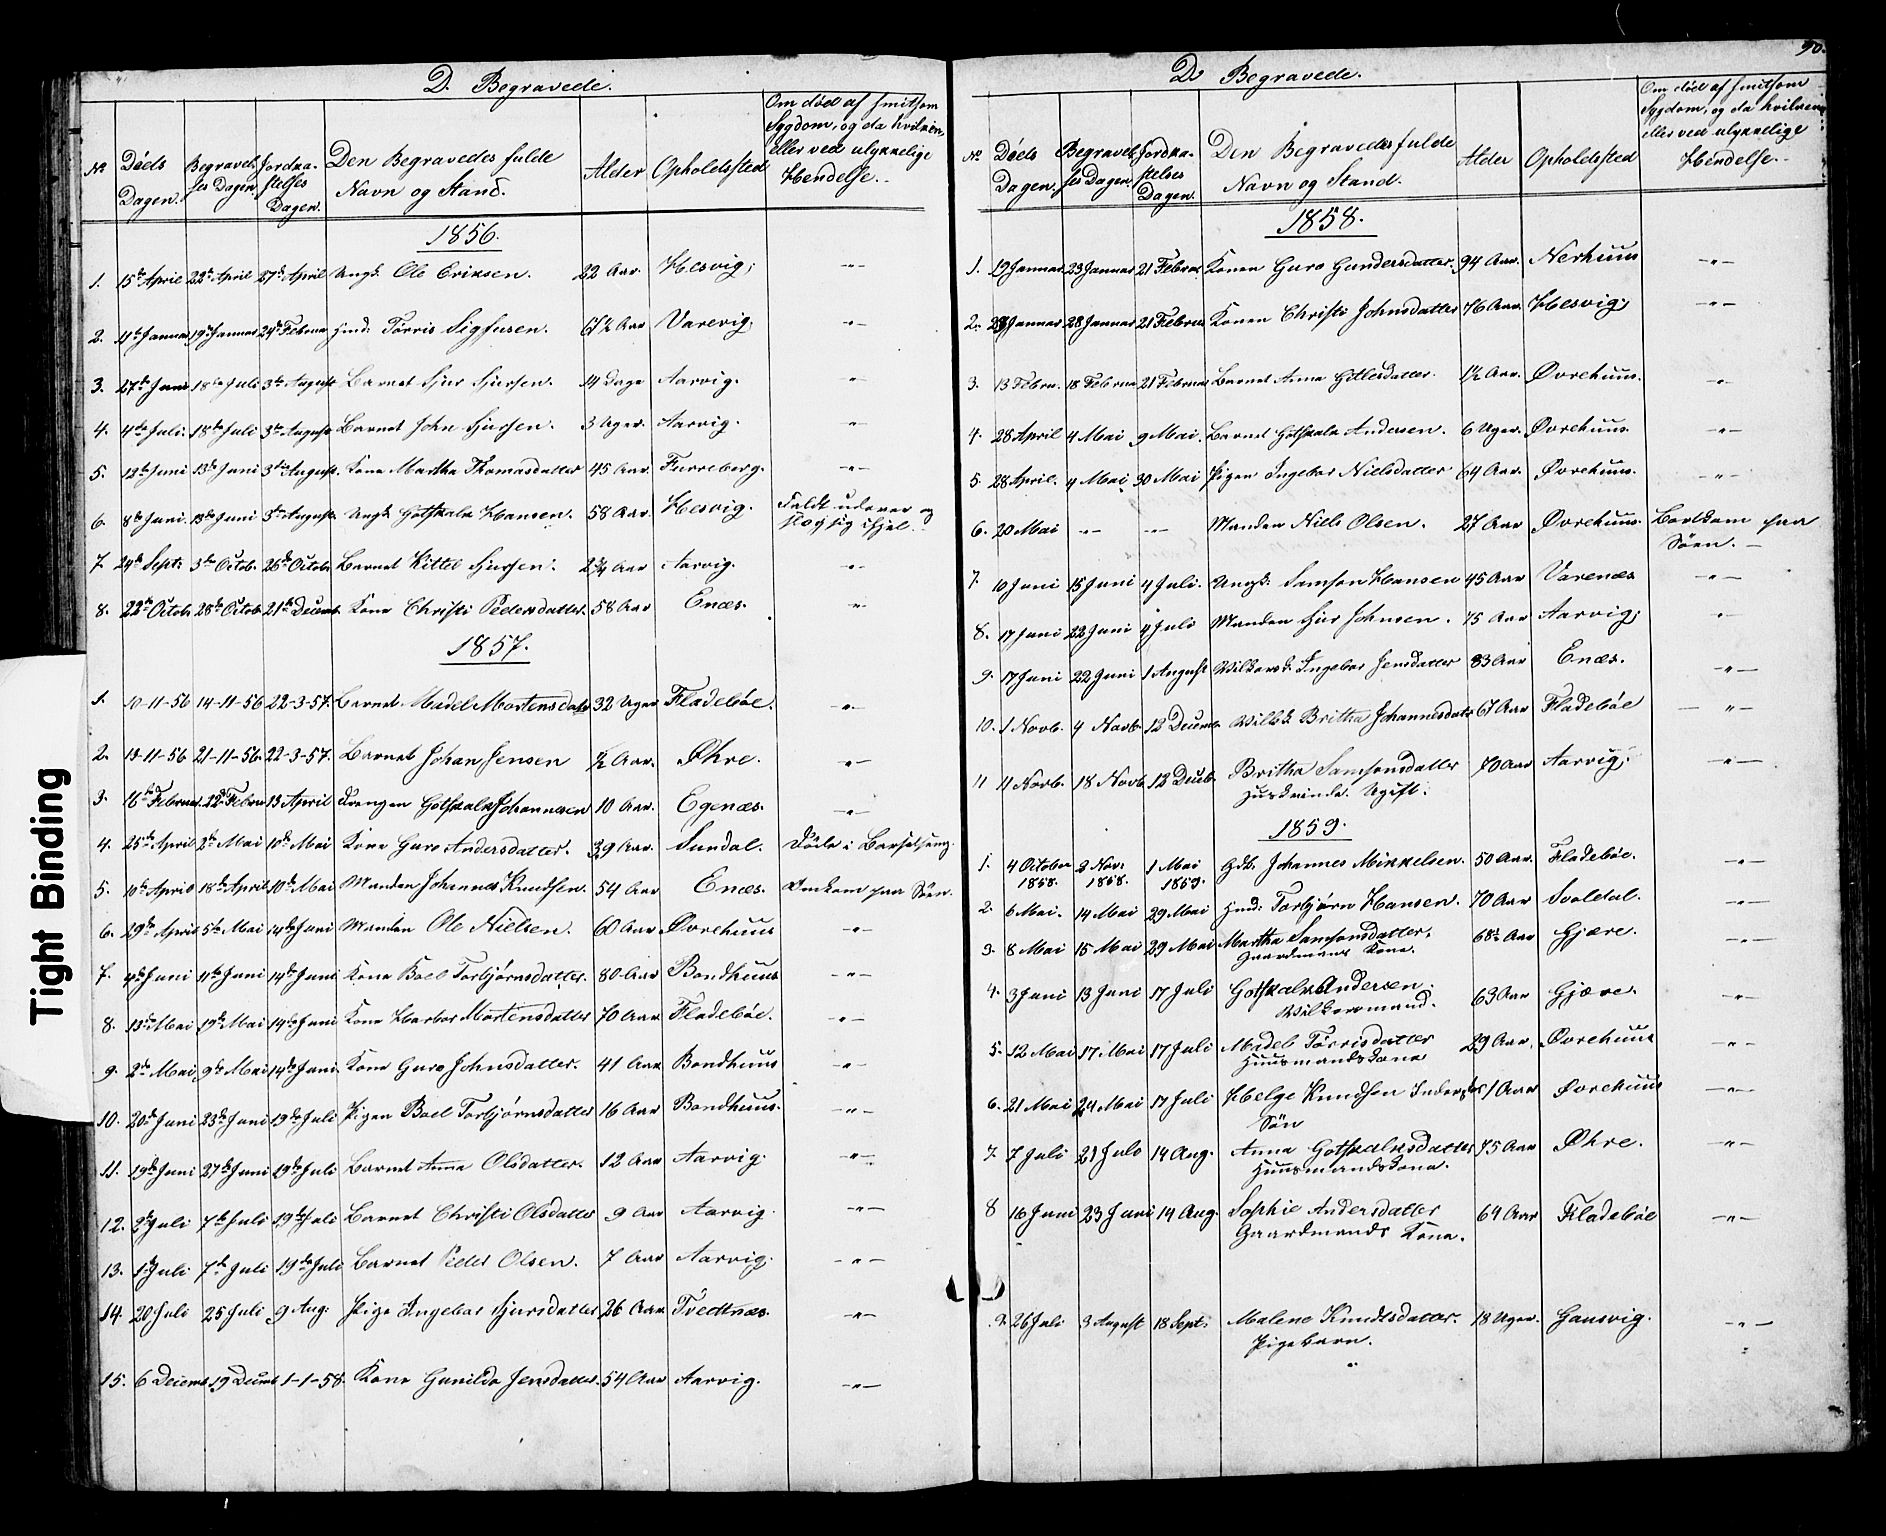 Tight Binding
D. Begravede.
No Døds Dagen. Begravelses Dagen. Jordkastelses Dagen. Den Begravedes fulde Navn og Stand. Alder Opholdssted Om død af smitsom Sygdom, og da hvilken, eller ved ulykkelige Hendelse.
1856.
1. 15de April 22de April 27de April Ungk. Ole Eriksen. 22 Aar. Hesvig,
2. 11te Januar 19de Januar 24de Februar Huusd. Tørris Sigfusen. 67½ Aar Varevig.
3. 27de Juni 18de Juli 3die August Barnet Sjur Sjursen. 14 Dage Aarvig.
4. 4de Juli. 18de Juli 3die August Barnet John Sjursen. 3 Uger. Aarvig.
5. 12te Juni 13de Juni 3die August. Kone Martha Thomasdatter 45 Aar. Furreberg.
6. 8de Juni. 13de Juni 3die August. Ungk. Gotskalk Hansen. 58 Aar. Hesvig. Faldt udover og slog sig ihjel.
7. 24de Septr 3die Octob. 26de Octobr Barnet Kittil Sjursen. 2¾ Aar Aarvig.
8. 22de Octob. 28de Octob. 21de Decemb. Kone Christi Pedersdatter. 58 Aar Enæs.
1857.
1. 10-11-56 14-11-56 22-3-57. Barnet Madel Mortensdatr 32 Uger Fladebøe.
2. 13-11-56 21-11-56. 22-3-57. Barnet Johan Jensen ½ Aar. Øhre.
3. 16de Februar. 22de Februar 13 April Drengen Gotskalk Johannesen 10 Aar. Egenæs.
4. 25de April 2den Mai 10de Mai Kone Guro Andersdatter. 39 Aar. Sundal. Døde i Barselseng.
5. 10de April 18de April 10de Mai Manden Johannes Knudsen. 54 Aar Enæs. Omkom paa Søen.
6. 29de April 5te Mai 14de Juni Manden Ole Nielsen. 60 Aar Øvrehuus
7. 4de Juni 11te Juni 14de Juni Kone Boel Torbjørnsdatter. 80 Aar Bondhuus
8. 13de Mai 19de Mai 14de Juni Kone Harbor Mortensdatter 70 Aar Fladebøe.
9. 2den Mai 9de Mai 14de Juni Kone Guro Johnsdatter. 41 Aar Bondhuus
10. 20de Juni 23de Juni 19de Juli Pigen Boel Torbjørnsdatter 16 Aar Bondhuus.
11. 19de Juni 27de Juni 19de Juli Barnet Anna Olsdatter. 12 Aar Aarvig.
12. 2den Juli 7de Juli 19de Juli Barnet Christi Olsdatter 9 Aar Aarvig.
13. 1ste Juli 7de Juli 19de Juli Barnet Peder Olsen. 7 Aar Aarvig.
14. 20 Juli 25 Juli 9 Aug: Pige Ingebor Sjursdatter 26 Aar. Tvedtnæs.
15. 6 Decemb 19 Decemb 1-1-58. Kone Gunilda Jensdatter. 54 Aar Aarvig.
90.
D. Begravede.
No Døds Dagen. Begravelses Dagen. Jordkastelses Dagen. Den Begravedes fulde Navn og Stand. Alder Opholdssted Om død af smitsom Sygdom, og da hvilken, eller ved ulykkelige Hendelse.
1858.
1. 19 Januar 23 Januar 21 Februar Konen Guro Gundersdatter. 94 Aar. Nerhuus
2. Januar 28 Januar 21 Februar Konen Christi Johnsdatter 76 Aar. Hesvig,
3. 13 Februar. 18 Februar 21 Februar Barnet Anna Gitlesdatter. 1½ Aar. Øvrehuus.
4. 28 April 4 Mai 9 Mai. Barnet Gotskalk Andersen. 6 Uger. Øvrehuus.
5. 28 April. 4 Mai 30 Mai Pigen Ingebor Nielsdatter 64 Aar. Øvrehuus.
6. 20 Mai Manden Niels Olsen. 27 Aar Øvrehuus. Bortkom paa Søen.
7. 10 Juni 15 Juni 4 Juli. Ungk: Samson Hansen 45 Aar Varenæs
8. 17 Juni 22 Juni 4 Juli Manden Sjur Johnsen. 75 Aar Aarvig,
9. 17 Juni 22 Juni 1 August Vilkorsk. Ingebor Jensdatter 83 Aar Enæs.
10. 1 Novb. 4 Novb. 12 Decemb. Vilksk. Britha Johannesdatr 67 Aar Fladebøe
11 11 Novb. 18 Novb. 12 Decemb. Britha Samsonsdatter Huuskvinde. Ugift. 70 Aar Aarvig,
1859.
1. 4 October 1858. 2 Nov: 1858. 1 Mai 1859. Gdb. Johannes Mikkelsen. 50 Aar. Fladebøe.
2. 6 Mai. 14 Mai 29 Mai Huusd: Torbjørn Hansen. 70 Aar Svoldal.
3. 8 Mai 15 Mai 29 Mai Martha Samsonsdatter, Gaardmans Kone. 68½ Aar Gjære.
4. 3 Juni 13 Juni 17 Juli Gotskalk Andersen. Vilkorsmand. 63 Aar Gjære.
5. 12 Mai 17 Mai 17 Juli Madel Tørrisdatter Huusmandskone 29 Aar. Øvrehuus
6. 21 Mai 24 Mai 17 Juli Helge Knudsen Inderstes Søn 1 Aar Øvrehuus
7. 7 Juli 21 Juli 14 Aug. Anna Gotskalksdatter Huusmandskone. 75 Aar Øhre.
8 16 Juni 23 Juni 14 Aug. Sophie Andersdatter Gaardmands Kone. 64 Aar Fladebøe
9. 26 Juli 3 August 18 Sept. Malene Knudsdatter. Pigebarn. 18 Uger. Gausvig.